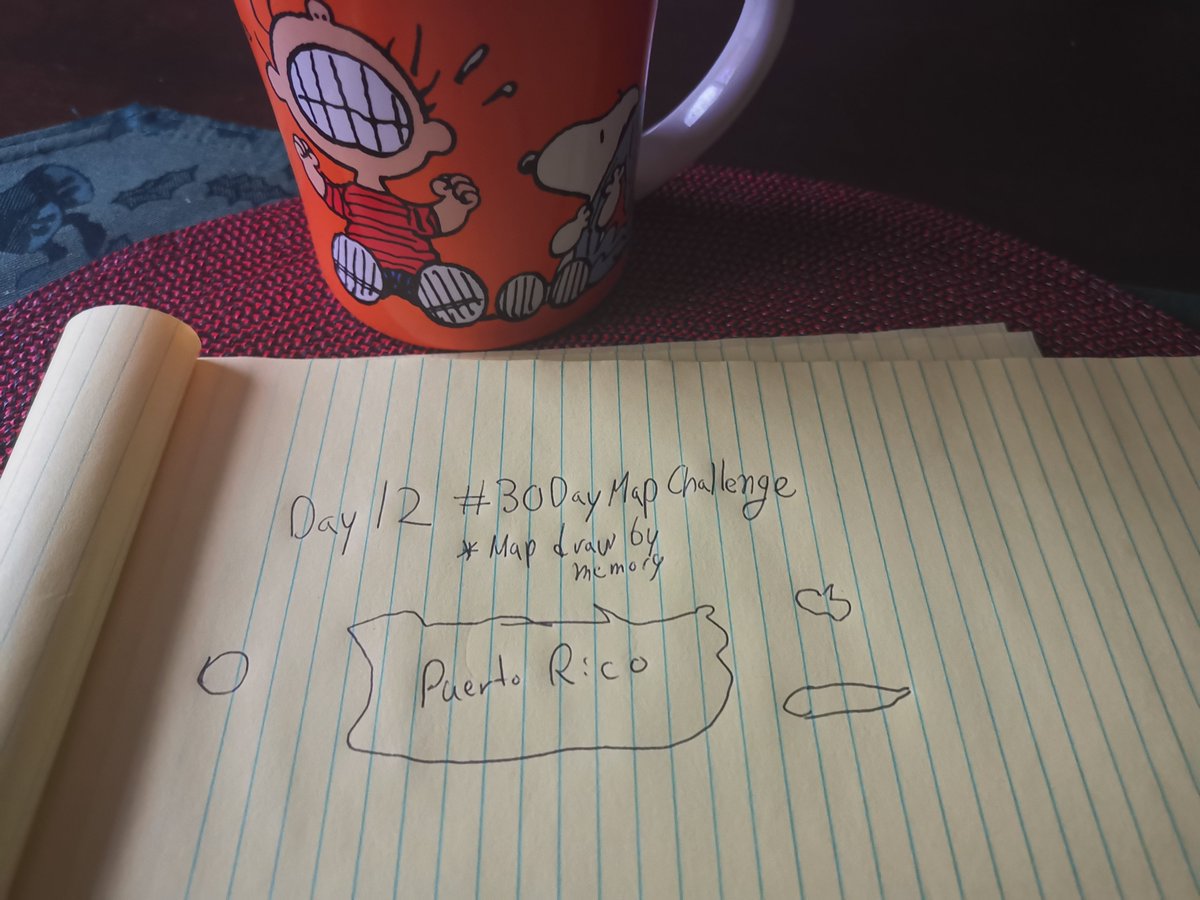 Day 12 #30DayMapChallenge
* Map draw by
memory
Puerto Rico